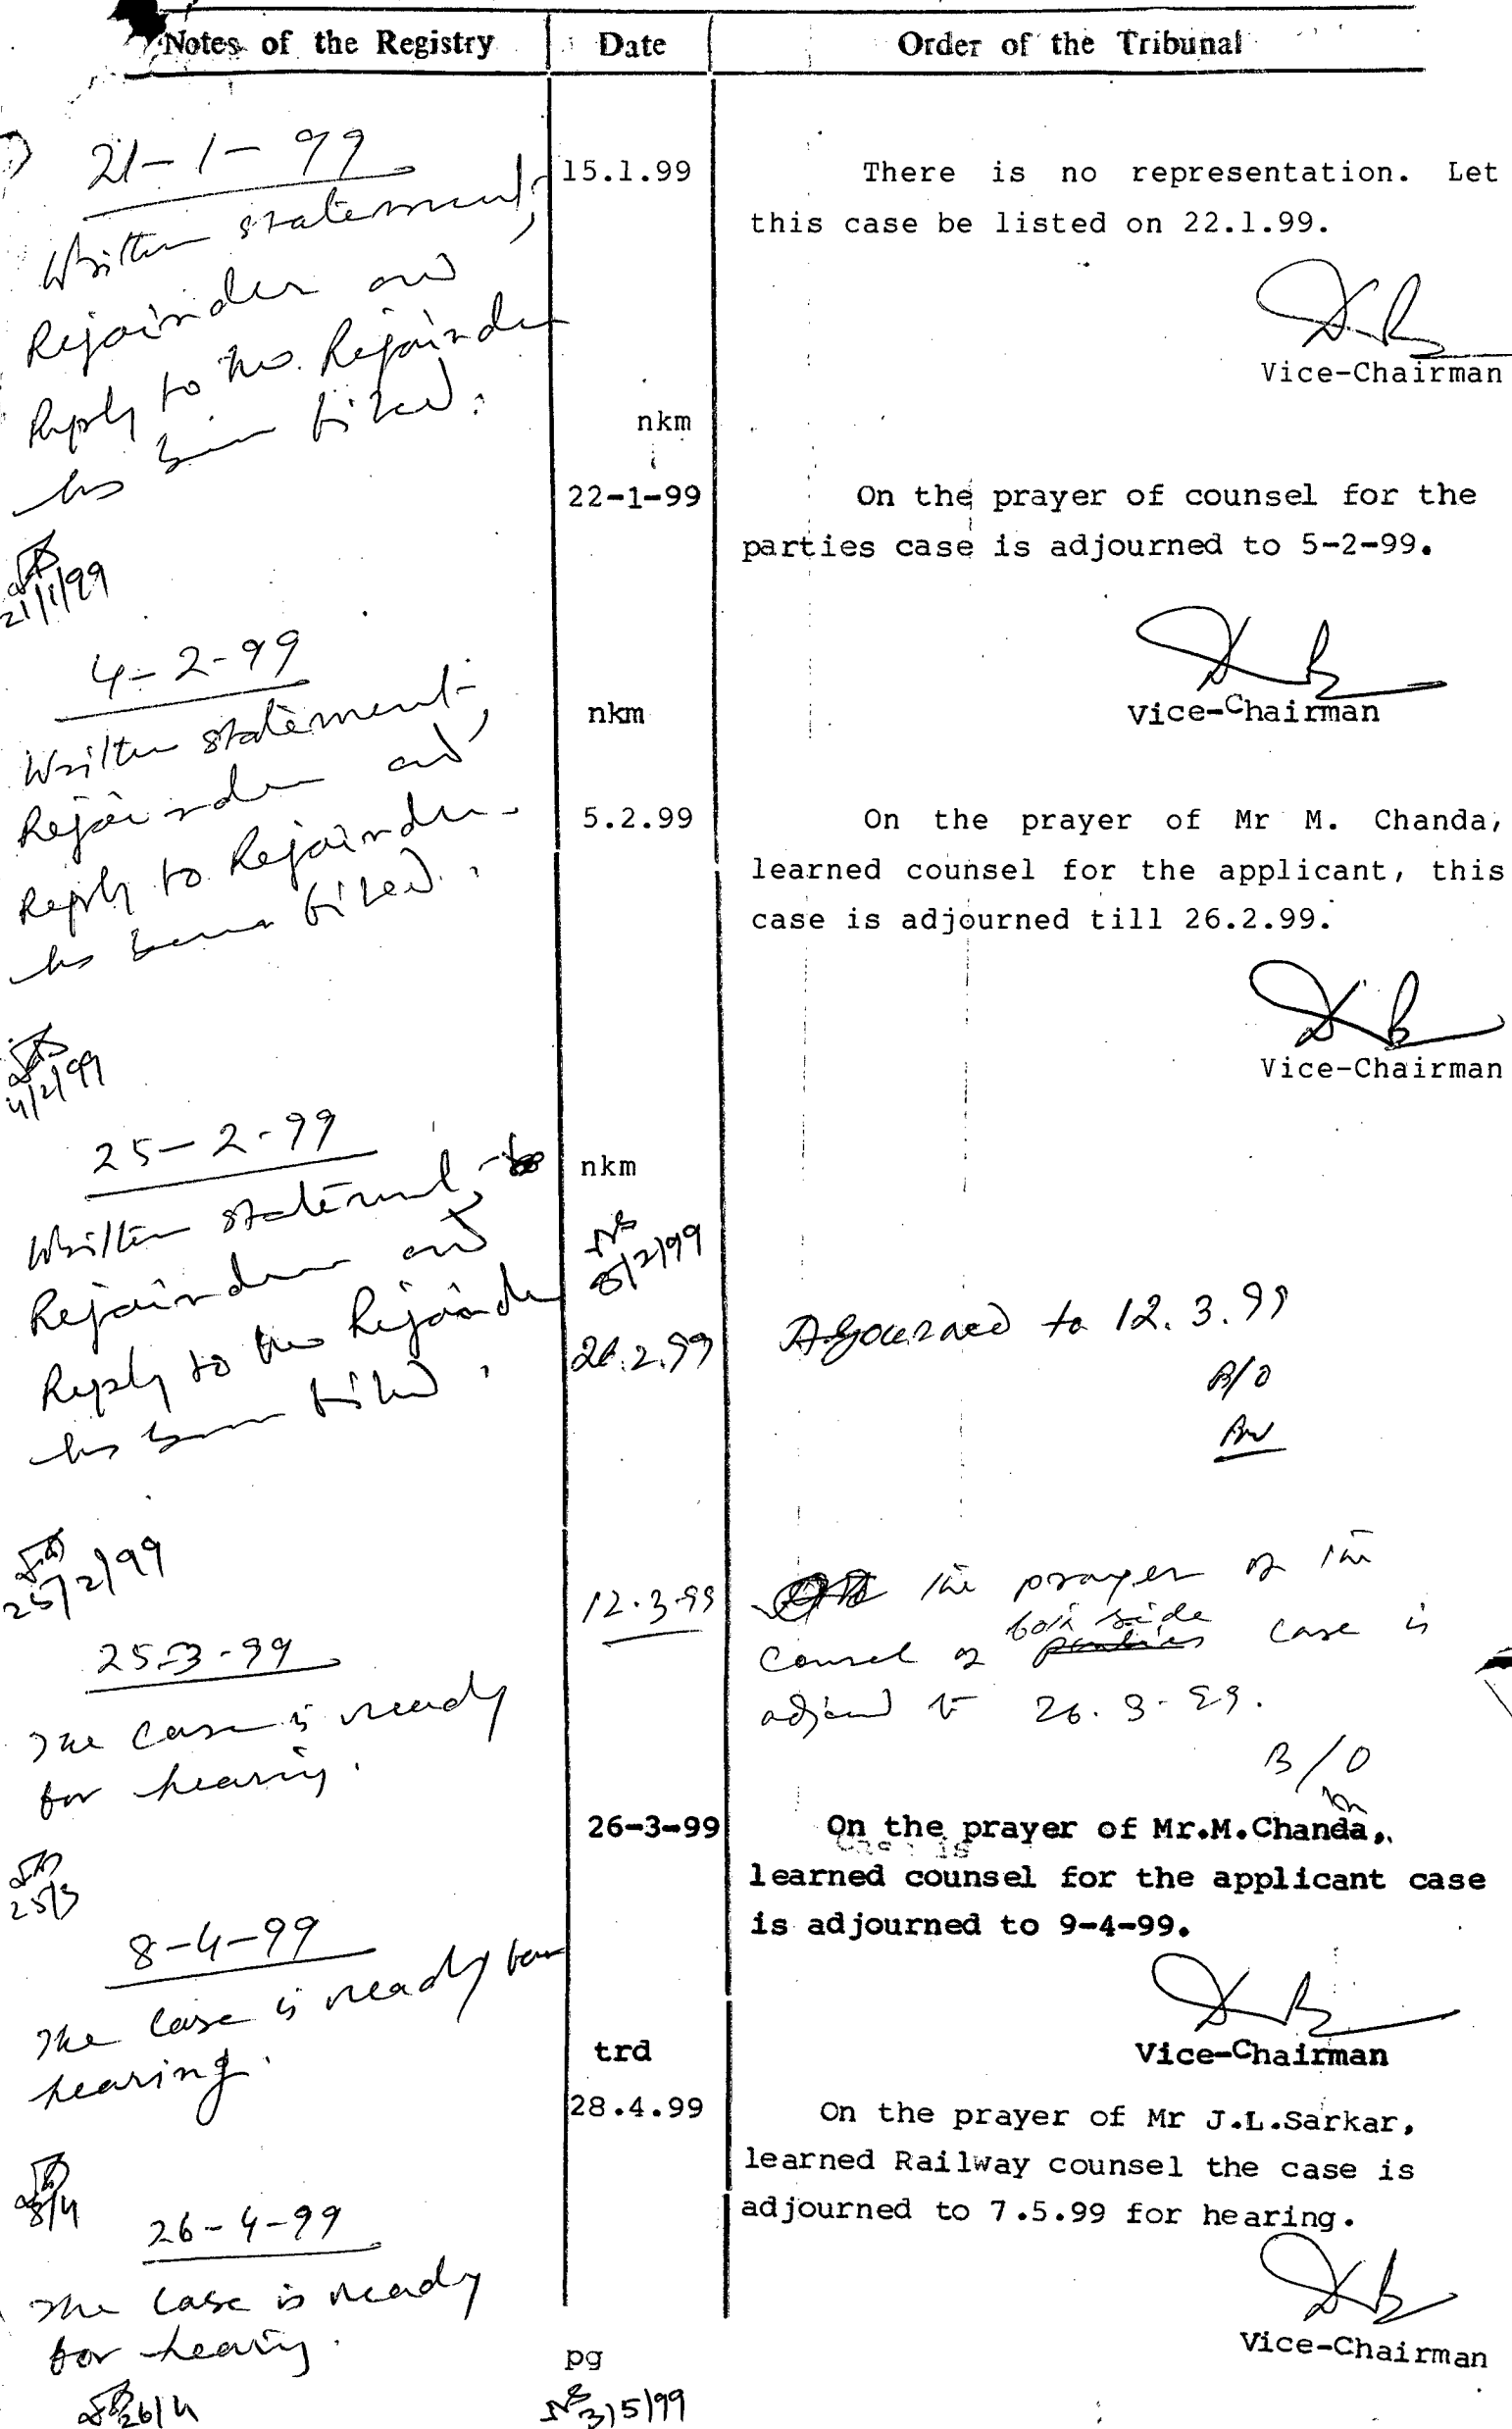 Notes of the Registry
Date
Order of the Tribunal
21-1-99
Written statement,
Rejoinder and
Reply to the Rejoinder
has been filed.
21/1/99
4-2-99
Written statement,
Rejoinder and
Reply to Rejoinder
has been filed.
4/2/99
25-2-99
Written statement,
Rejoinder and
Reply to the Rejoinder
has been filed.
25/2/99
25-3-99
The case is ready
for hearing.
25/3
8-4-99
The case is ready for
hearing.
8/4
26-4-99
The case is ready
for hearing.
26/4
15.1.99
There is no representation. Let
this case be listed on 22.1.99.
Vice-Chairman
nkm
22-1-99
On the prayer of counsel for the
parties case is adjourned to 5-2-99.
Vice-Chairman
nkm
5.2.99
On the prayer of Mr M. Chanda,
learned counsel for the applicant, this
case is adjourned till 26.2.99.
Vice-Chairman
nkm
8/2/99
26.2.99
Adjourned to 12.3.99
B/O
12.3.99
the prayer of the
counsel of both side case is
adjourned to 26.3.99.
B/O
26-3-99
On the prayer of Mr.M.Chanda,
learned counsel for the applicant case
is adjourned to 9-4-99.
Vice-Chairman
trd
28.4.99
On the prayer of Mr J.L.Sarkar,
learned Railway counsel the case is
adjourned to 7.5.99 for hearing.
Vice-Chairman
pg
3/5/99